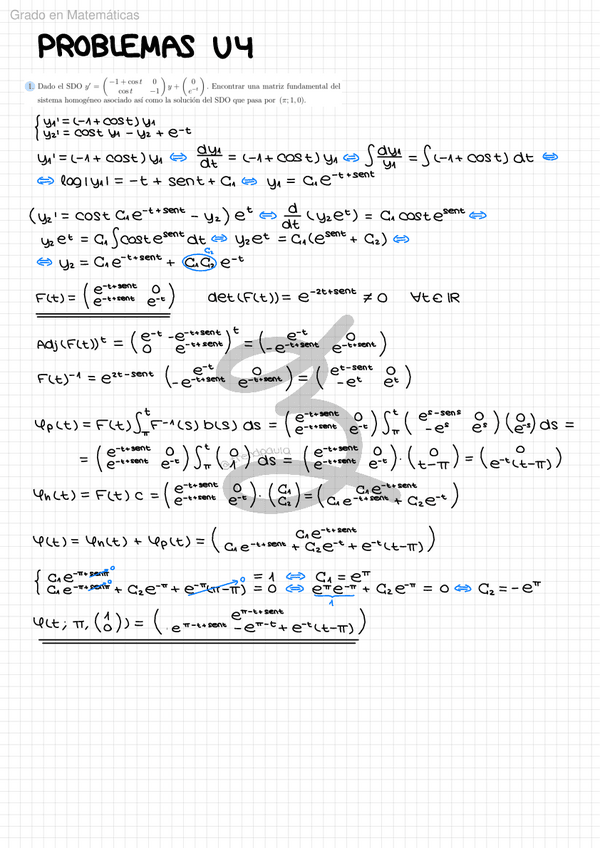 Grado en Matemáticas
PROBLEMAS U4
1. Dado el SDO y' = \begin{pmatrix} -1 + cos t & 0 \\ cos t & -1 \end{pmatrix} y + \begin{pmatrix} 0 \\ e^{-t} \end{pmatrix}. Encontrar una matriz fundamental del
sistema homogéneo asociado así como la solución del SDO que pasa por (π; 1, 0).
{ y₁' = (-1 + cost) y₁
y₂' = cost y₁ - y₂ + e^{-t}
y₁' = (-1 + cost) y₁ ⇔ dy₁/dt = (-1 + cost) y₁ ⇔ ∫ dy₁/y₁ = ∫(-1 + cost) dt ⇔
⇔ log|y₁| = -t + sent + C₁ ⇔ y₁ = C₁e^{-t+sent}
(y₂' = cost C₁e^{-t+sent} - y₂) e^t ⇔ d/dt (y₂e^t) = C₁ cost e^{sent} ⇔
y₂e^t = C₁ ∫cost e^{sent} dt ⇔ y₂e^t = C₁(e^{sent} + C₂) ⇔
C₂
⇔ y₂ = C₁e^{-t+sent} + C₁C₂ e^{-t}
F(t) = \begin{pmatrix} e^{-t+sent} & 0 \\ e^{-t+sent} & e^{-t} \end{pmatrix} det(F(t)) = e^{-2t+sent} ≠ 0 ∀t ∈ ℝ
Adj(F(t))^t = \begin{pmatrix} e^{-t} & -e^{-t+sent} \\ 0 & e^{-t+sent} \end{pmatrix}^t = \begin{pmatrix} e^{-t} & 0 \\ -e^{-t+sent} & e^{-t+sent} \end{pmatrix}
F(t)^{-1} = e^{2t-sent} \begin{pmatrix} e^{-t} & 0 \\ -e^{-t+sent} & e^{-t+sent} \end{pmatrix} = \begin{pmatrix} e^{t-sent} & 0 \\ -e^t & e^t \end{pmatrix}
φp(t) = F(t) ∫_π^t F^{-1}(s) b(s) ds = \begin{pmatrix} e^{-t+sent} & 0 \\ e^{-t+sent} & e^{-t} \end{pmatrix} ∫_π^t \begin{pmatrix} e^{s-sens} & 0 \\ -e^s & e^s \end{pmatrix} \begin{pmatrix} 0 \\ e^{-s} \end{pmatrix} ds =
= \begin{pmatrix} e^{-t+sent} & 0 \\ e^{-t+sent} & e^{-t} \end{pmatrix} ∫_π^t \begin{pmatrix} 0 \\ 1 \end{pmatrix} ds = \begin{pmatrix} e^{-t+sent} & 0 \\ e^{-t+sent} & e^{-t} \end{pmatrix} · \begin{pmatrix} 0 \\ t-π \end{pmatrix} = \begin{pmatrix} 0 \\ e^{-t}(t-π) \end{pmatrix}
φh(t) = F(t) c = \begin{pmatrix} e^{-t+sent} & 0 \\ e^{-t+sent} & e^{-t} \end{pmatrix} · \begin{pmatrix} C₁ \\ C₂ \end{pmatrix} = \begin{pmatrix} C₁e^{-t+sent} \\ C₁e^{-t+sent} + C₂e^{-t} \end{pmatrix}
φ(t) = φh(t) + φp(t) = \begin{pmatrix} C₁e^{-t+sent} \\ C₁e^{-t+sent} + C₂e^{-t} + e^{-t}(t-π) \end{pmatrix}
{ C₁e^{-π+senπ} 0 = 1 ⇔ C₁ = e^π
C₁e^{-π+senπ} 0 + C₂e^{-π} + e^{-π}(π-π) 0 = 0 ⇔ e^π e^{-π} + C₂e^{-π} = 0 ⇔ C₂ = -e^π
1
φ(t; π, \begin{pmatrix} 1 \\ 0 \end{pmatrix}) = \begin{pmatrix} e^{π-t+sent} \\ e^{π-t+sent} - e^{π-t} + e^{-t}(t-π) \end{pmatrix}